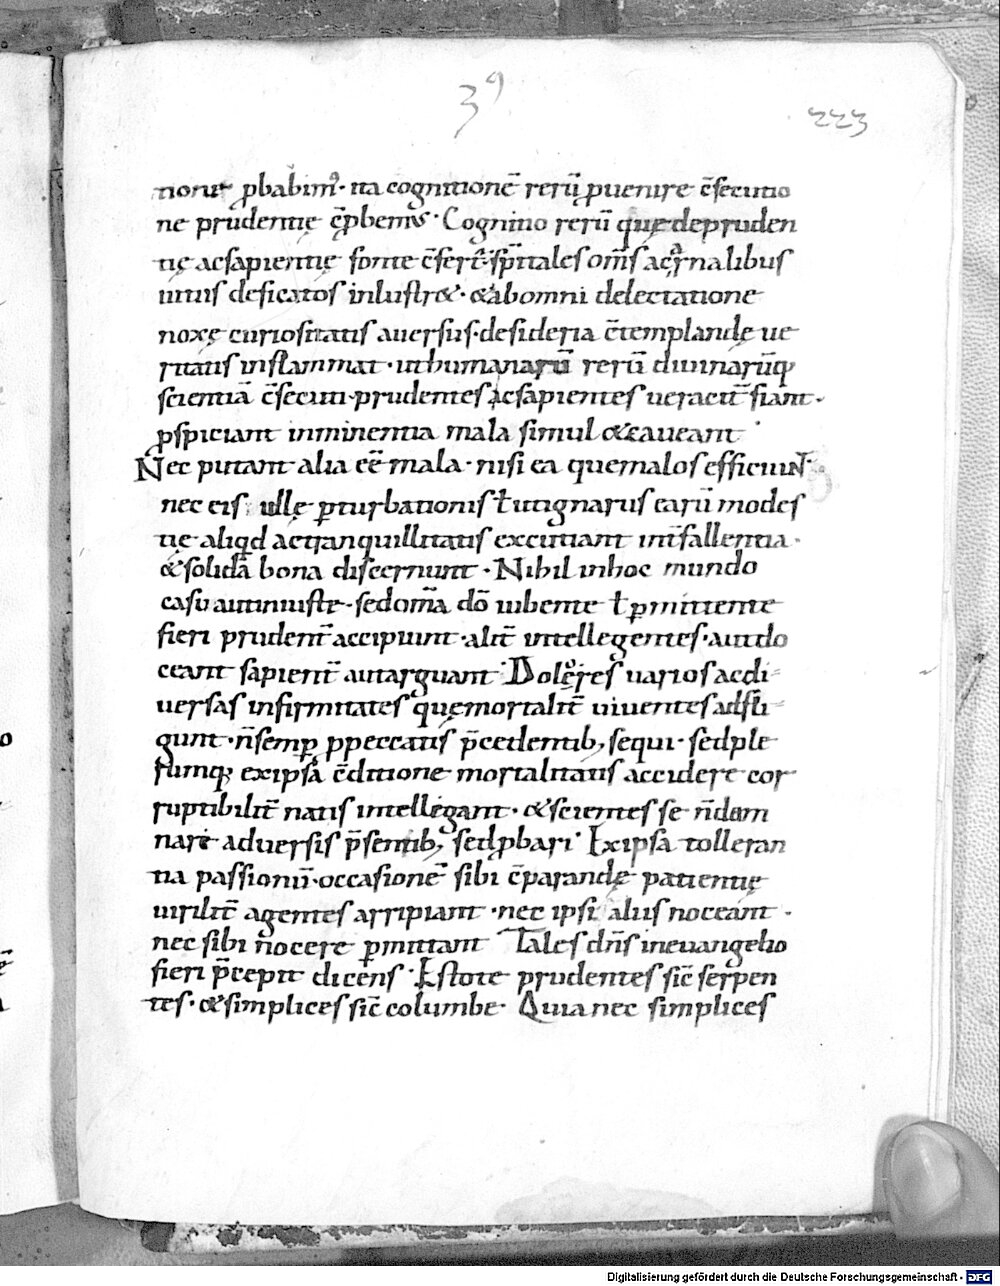 39
223
tioru͛ ꝓbabim᷒· ita cognitionē rerū ꝓuenire c̄secutio
ne prudentię c̄ꝓbemus· Cognitio rerū quę depruden
tię acsapientię fonte c̄fert᷒· sp̄itales om̄s ac
uitiis deficatos inlustr&· &abomni delectatione
noxę curiositatis auersus· desideria c̄templandę ue
ritatis inflammat· uthumanarū rerū diuinarūq;
scientiā c̄secuti· prudentes acsapientes ueracit̄ fiant·
ꝓspiciant inminentia mala simul &caueant
Nec putant alia eē mala· nisi ea quemalos efficiuɴt·
nec eis ullę ꝑturbationis ł utignarus earū modes
tię aliqd actranquillitatis excutiant int̄ fallentia·
&solida bona discernunt· Nihil inhoc mundo
casu autiniuste· sedom̄a dō iubente ł ꝑmittente
fieri prudent̄ accipiunt· alit̄ intellegentes· autdo
ceant sapient̄ autarguant· Dolores uarios acdi
uersas infirmitates quęmortalit̄ uiuentes adfli
gunt· n̄semꝑ ꝓpeccatis p̄cedentib; sequi· sedple
rumq; exipsa c̄ditione mortalitatis accidere cor
ruptibilit̄ natis intellegant· &scientes se n̄dam
nari aduersis p̄sentib; sedꝓbari· Exipsa tolleran
tia passionū· occasionē sibi c̄parandę patientię
uirilit̄ agentes arripiant· nec ipsi aliis noceant·
nec sibi nocere ꝑmittant Tales dn̄s ineuangelio
fieri p̄cepit dicens· Estote prudentes sic̄ serpen
tes· &simplices sic̄ columbe· Quia nec simplices
Digitalisierung gefördert durch die Deutsche Forschungsgemeinschaft - DFG